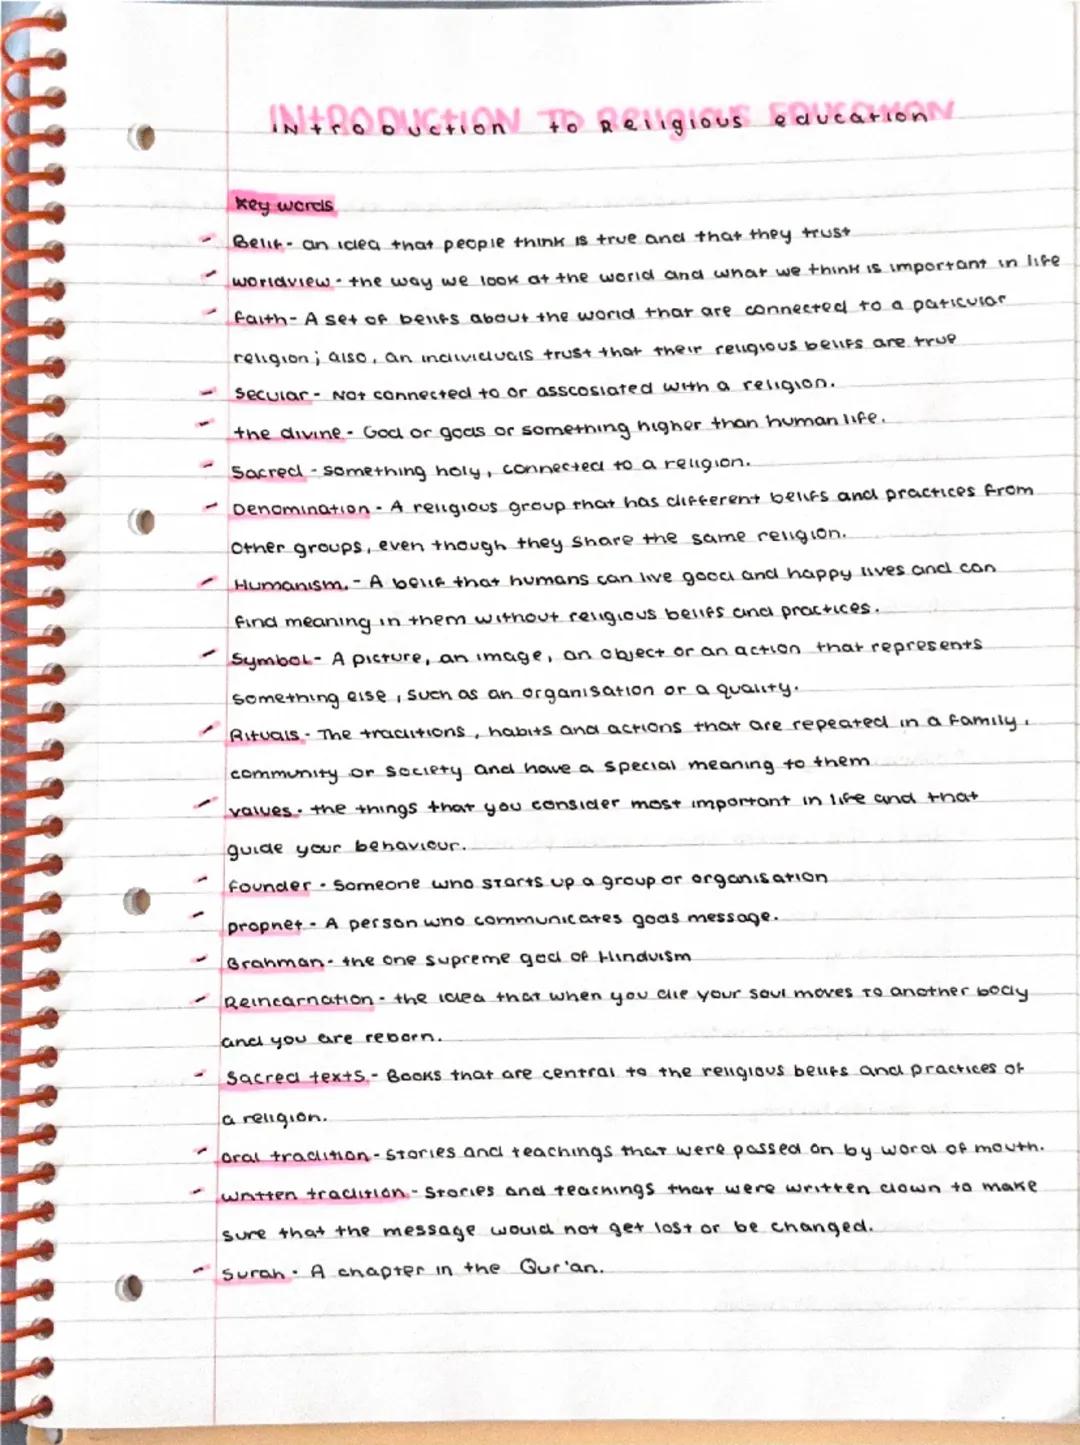 INTRODUCTION TO RELIGIOUS EDUCATION
Introduction to Religious education
Key words
- Belif - an idea that people think is true and that they trust
- worldview - the way we look at the world and what we think is important in life
- faith - A set of belifs about the world that are connected to a paticular
religion; also, an individuals trust that their religious belifs are true
- Secular - Not connected to or asscosiated with a religion.
- the divine - God or gods or something higher than human life.
- Sacred - something holy, connected to a religion.
- Denomination - A religious group that has different belifs and practices from
other groups, even though they share the same religion.
- Humanism. - A belif that humans can live good and happy lives and can
find meaning in them without religious belifs and practices.
- Symbol - A picture, an image, an object or an action that represents
something else, such as an organisation or a quality.
- Rituals - The traditions, habits and actions that are repeated in a family,
community or society and have a special meaning to them
- values - the things that you consider most important in life and that
guide your behaviour.
- founder - Someone who starts up a group or organisation
- prophet - A person who communicates gods message.
- Brahman - the one supreme god of Hinduism
- Reincarnation - the idea that when you die your soul moves to another body
and you are reborn.
- Sacred texts. - Books that are central to the religious belifs and practices of
a religion.
- oral tradition - stories and teachings that were passed on by word of mouth.
- written tradition - Stories and teachings that were written down to make
sure that the message would not get lost or be changed.
- surah - A chapter in the Qur'an.